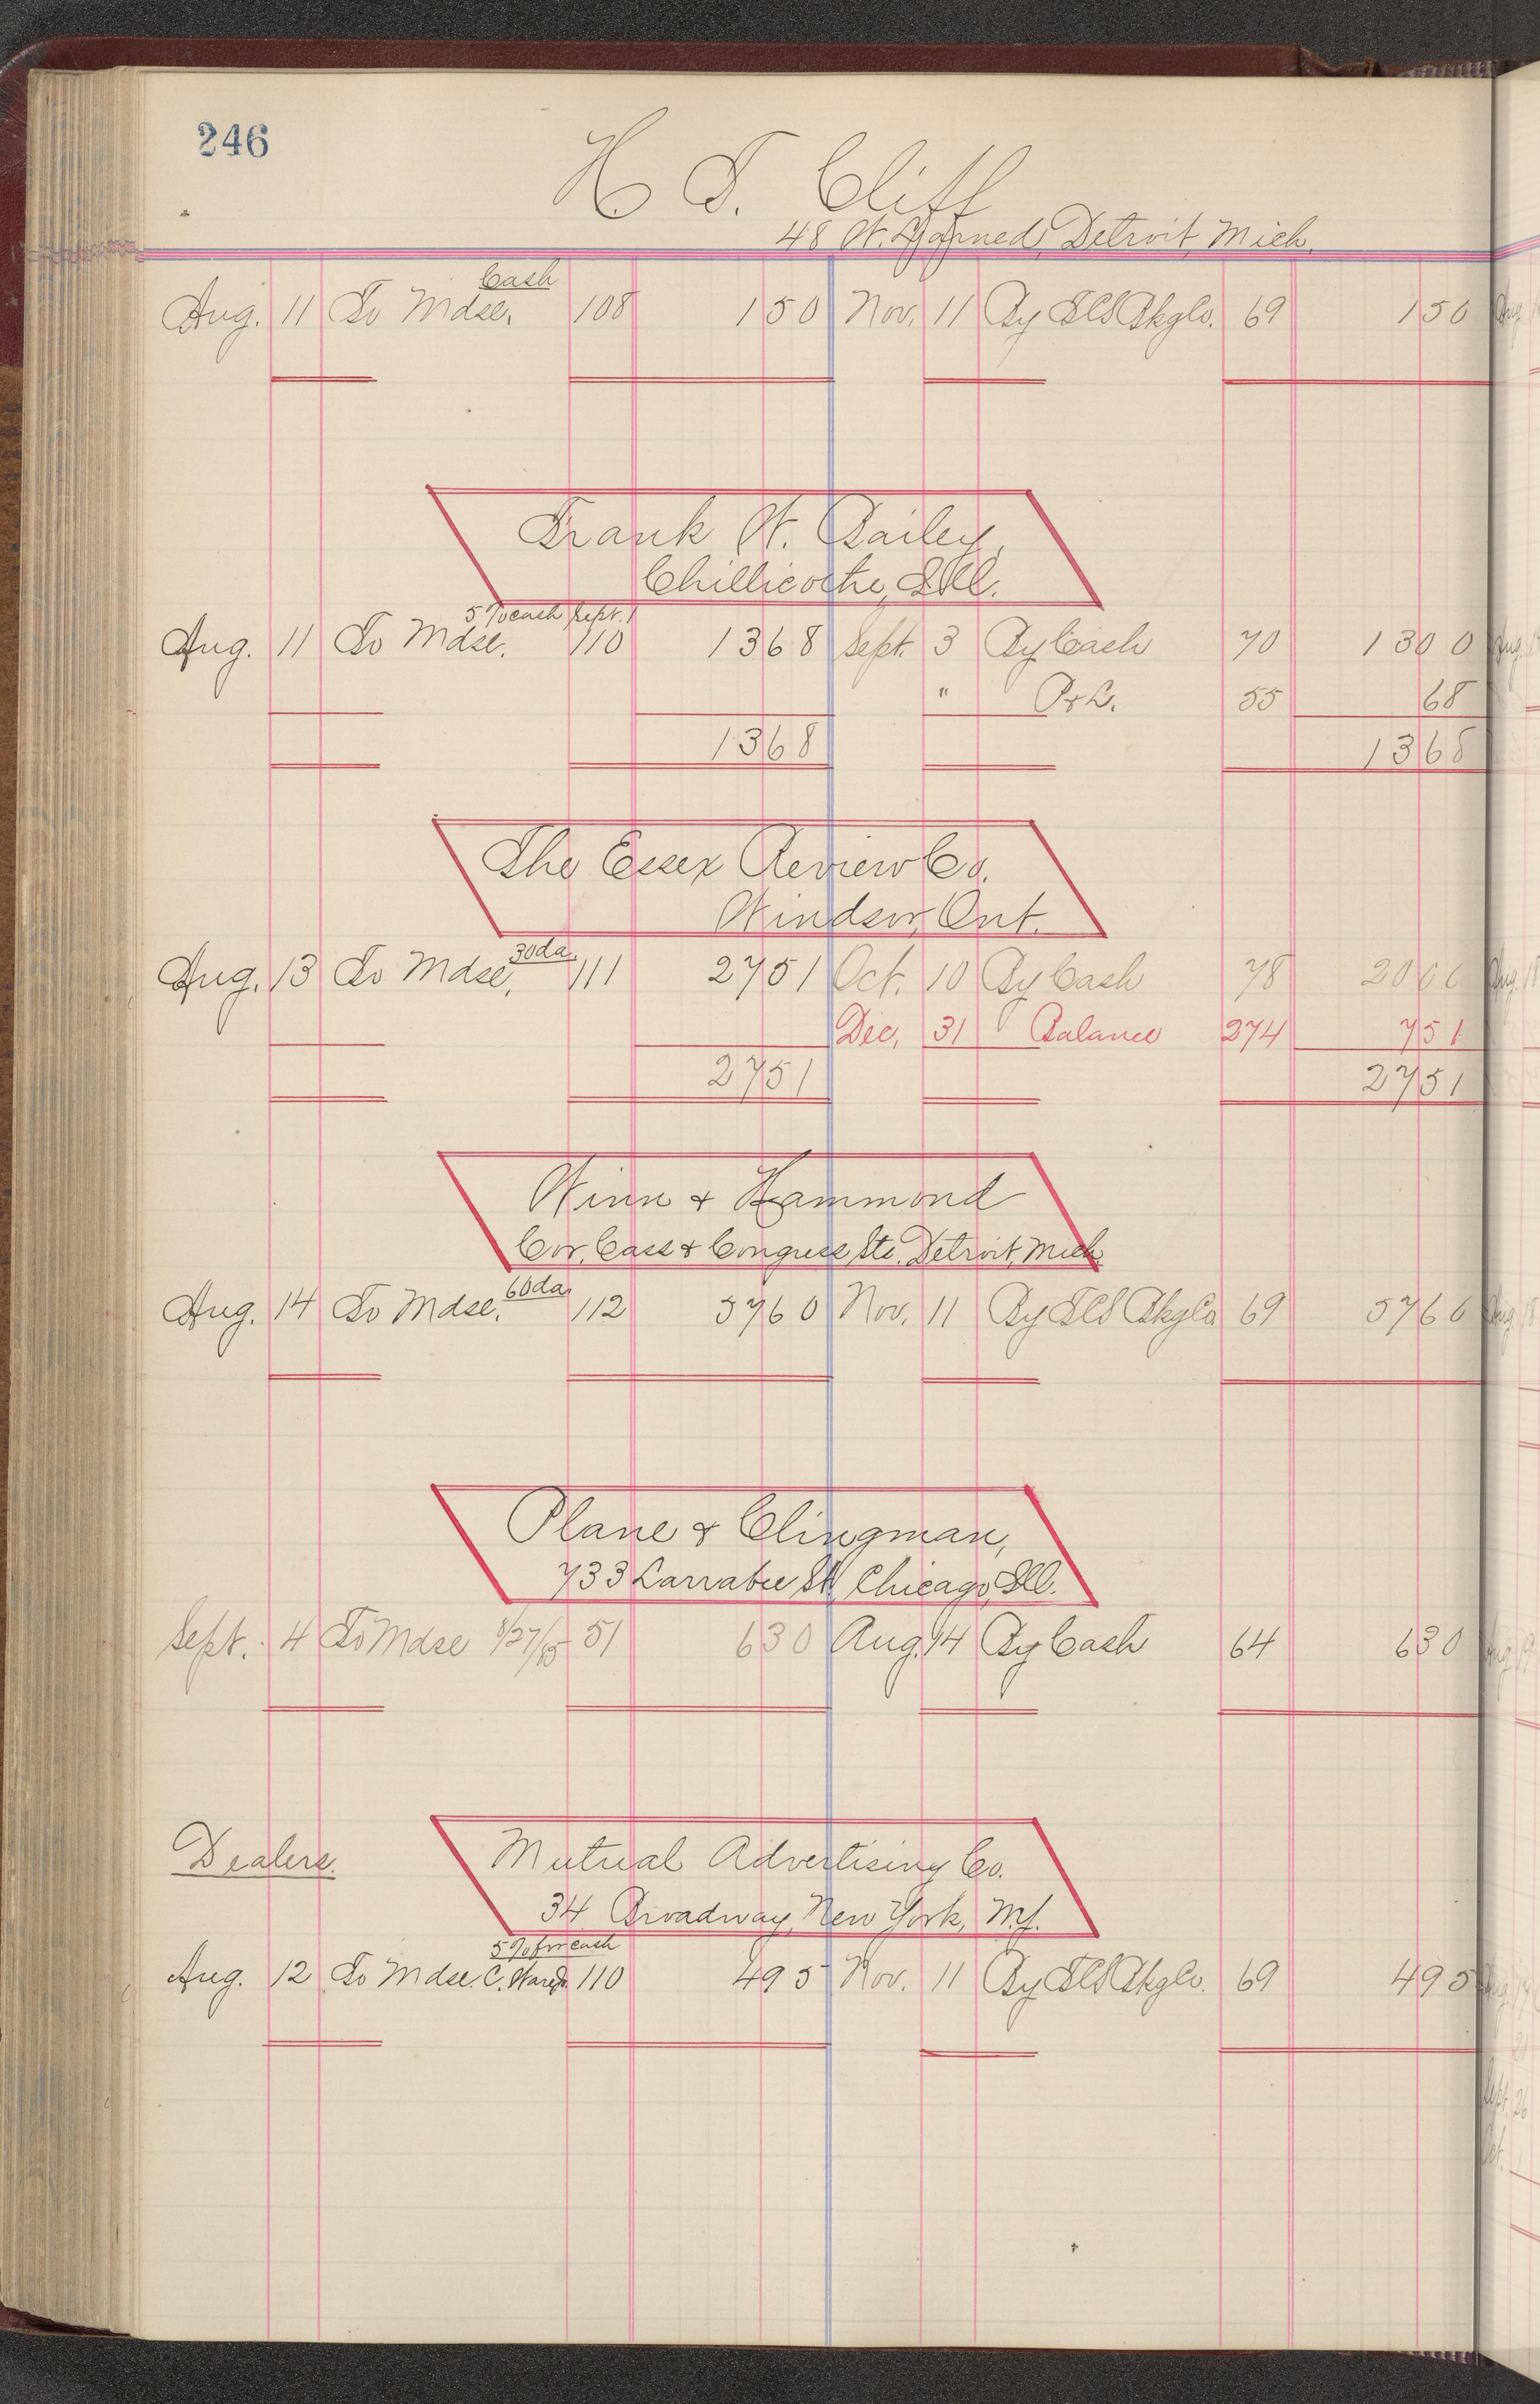 246
H. T. Cliff
48 W. Larned, Detroit, Mich.
Cash
Aug. 11 To Mdse. 108 150 Nov. 11 By Bkg Co. 69 150
Frank W. Bailey,
Chillicothe, Ill.
5% cash Sept. 1
Aug. 11 To Mdse. 110 1368 Sept. 3 By Cash 70 1300
" P & L. 55 68
1368 1368
The Essex Review Co.
Windsor, Ont.
30 da.
Aug. 13 To Mdse. 111 2751 Oct. 10 By Cash 78 2000
Dec. 31 " Balance 274 751
2751 2751
Winn & Hammond
Cor. Cass & Congress Sts. Detroit, Mich.
60 da.
Aug. 14 To Mdse. 112 5760 Nov. 11 By Bkg Co. 69 5760
Plane & Clingman,
733 Larrabee St, Chicago, Ill.
Sept. 4 To Mdse 8/27/85 51 630 Aug. 14 By Cash 64 630
Dealers.
Mutual Advertising Co.
34 Broadway, New York, N.Y.
5% for cash
Aug. 12 To Mdse. C. 110 495 Nov. 11 By Bkg Co. 69 495